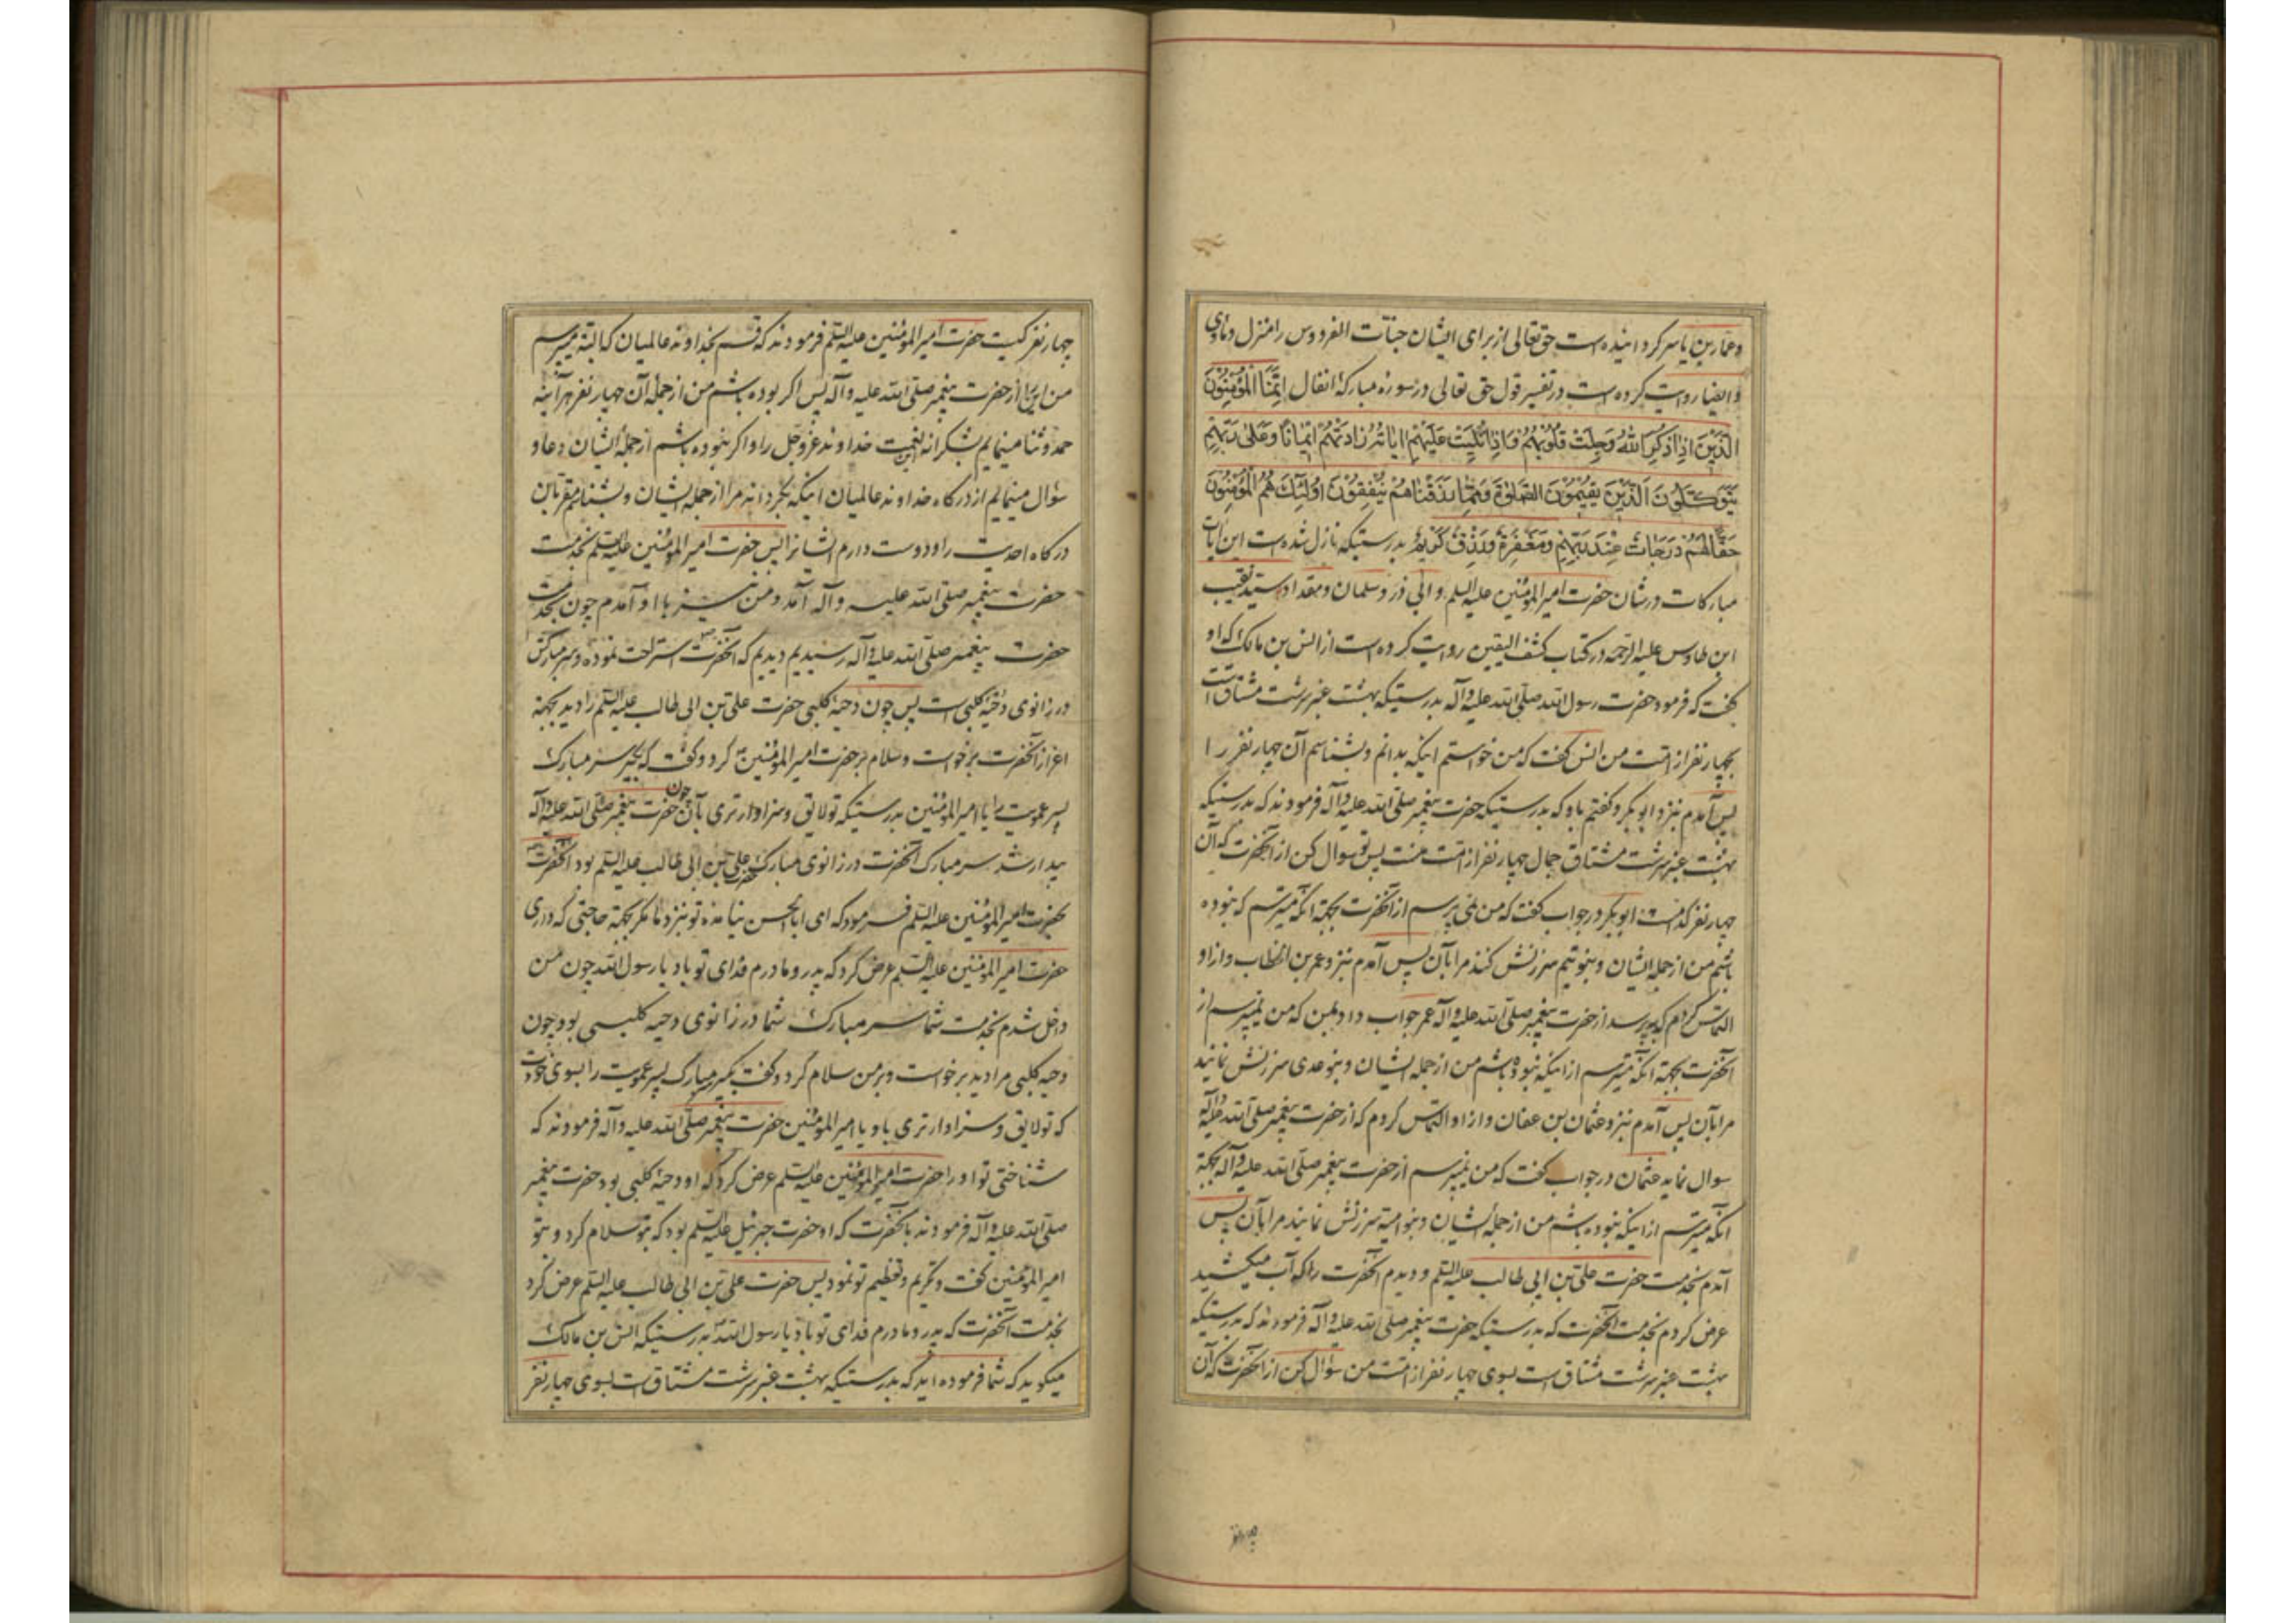 وعمار بن یاسر کردانیده است حق تعالی از برای ایشان جنات الفردوس را منزل و ماوی
و ایضا روایت کرده است در تفسیر قول حق تعالی در سوره مبارکهٔ انفال اِنَّمَا الْمُؤْمِنُونَ
الَّذِینَ اِذَا ذُکِرَ اللّٰهُ وَجِلَتْ قُلُوبُهُمْ وَاِذَا تُلِیَتْ عَلَیْهِمْ ایَاتُهُ زَادَتْهُمْ اِیمَانًا وَعَلٰی رَبِّهِمْ
یَتَوَکَّلُونَ اَلَّذِینَ یُقِیمُونَ الصَّلٰوةَ وَمِمَّا رَزَقْنَاهُمْ یُنْفِقُونَ اُولٰئِکَ هُمُ الْمُؤْمِنُونَ
حَقًّا لَهُمْ دَرَجَاتٌ عِنْدَ رَبِّهِمْ وَمَغْفِرَةٌ وَرِزْقٌ کَرِیمٌ بدرستیکه نازل شده است این ایات
مبارکات در شان حضرت امیر المؤمنین علیه السلم و ابی ذر و سلمان و مقداد و سید نقیب
ابن طاوس علیه الرحمه در کتاب کشف الیقین روایت کرده است از انس بن مالک که او
گفت که فرمود حضرت رسول الله صلی الله علیه وآله بدرستیکه بهشت عنبر سرشت مشتاق است
بچهار نفر از امت من انس گفت که من خواستم اینکه بدانم و بشناسم آن چهار نفر را
پس آمدم بنزد ابو بکر و گفتم باو که بدرستیکه حضرت پیغمبر صلی الله علیه وآله فرمودند که بدرستیکه
بهشت عنبر سرشت مشتاق جمال چهار نفر از امت منست پس تو سوال کن از آنحضرت که آن
چهار نفر کدامست ابو بکر در جواب گفت که من نمی پرسم از آنحضرت بجهة آنکه میترسم که نبوده
باشم من از جمله ایشان و بنو تیم سرزنش کنند مرا بآن پس آمدم بنزد عمر بن الخطاب و از او
التماس کردم که بپرسد از حضرت پیغمبر صلی الله علیه وآله عمر جواب داد بمن که من نمیپرسم از
آنحضرت بجهة آنکه میترسم از اینکه نبوده باشم من از جمله ایشان و بنو عدی سرزنش نمایند
مرا بآن پس آمدم بنزد عثمان بن عفان و از او التماس کردم که از حضرت پیغمبر صلی الله علیه وآله
سوال نماید عثمان در جواب گفت که من نمیپرسم از حضرت پیغمبر صلی الله علیه وآله بجهة
آنکه میترسم از اینکه نبوده باشم من از جمله ایشان و بنو امیه سرزنش نمایند مرا بآن پس
آمدم بخدمت حضرت علی بن ابی طالب علیه السلم و دیدم آنحضرت را که آب میکشید
عرض کردم بخدمت آنحضرت که بدرستیکه حضرت پیغمبر صلی الله علیه وآله فرمودند که بدرستیکه
بهشت عنبر سرشت مشتاق است بسوی چهار نفر از امت من سؤال کن از آنحضرت که آن
چهار نفر
چهار نفر کیست حضرت امیر المؤمنین علیه السلم فرمودند که قسم بخداوند عالمیان که البته میپرسم
من این را از حضرت پیغمبر صلی الله علیه وآله پس اکر بوده باشم من از جمله آن چهار نفر هر آینه
حمد و ثنا مینمایم بشکرانه این نعمت خداوند عز وجل را و اکر نبوده باشم از جمله ایشان دعا و
سؤال مینمایم از درکاه خداوند عالمیان اینکه بکرداند مرا از جمله ایشان و بشناسم مقربان
درکاه احدیت را و دوست دارم ایشانرا پس حضرت امیر المؤمنین علیه السلم بخدمت
حضرت پیغمبر صلی الله علیه وآله آمد و من نیز با او آمدم چون بخدمت
حضرت پیغمبر صلی الله علیه وآله رسیدیم دیدیم که آنحضرت استراحت نموده و سر مبارکش
در زانوی دحیه کلبی است پس چون دحیه کلبی حضرت علی بن ابی طالب علیه السلم را دید بجهة
اعزاز آنحضرت برخواست و سلام بر حضرت امیر المؤمنین کرد و گفت که بگیر سر مبارک
پسر عمویت را یا امیر المؤمنین بدرستیکه تو لایق و سزاوارتری بآن چون حضرت پیغمبر صلی الله علیه وآله
بیدار شد سر مبارک آنحضرت در زانوی مبارک حضرت علی بن ابی طالب علیه السلم بود آنحضرت
بحضرت امیر المؤمنین علیه السلم فرمود که ای ابا الحسن نیامدهٔ تو بنزد ما مکر بجهة حاجتی که داری
حضرت امیر المؤمنین علیه السلم عرض کرد که پدر و مادرم فدای تو باد یا رسول الله چون من
داخل شدم بخدمت شما سر مبارک شما در زانوی دحیه کلبی بود چون
دحیه کلبی مرا دید برخواست و بر من سلام کرد و گفت بگیر سر مبارک پسر عمویت را بسوی خودت
که تو لایق و سزاوارتری باو یا امیر المؤمنین حضرت پیغمبر صلی الله علیه وآله فرمودند که
شناختی تو او را حضرت امیر المؤمنین علیه السلم عرض کرد که او دحیه کلبی بود حضرت پیغمبر
صلی الله علیه وآله فرمودند بآنحضرت که او حضرت جبرئیل علیه السلم بود که بتو سلام کرد و بتو
امیر المؤمنین گفت و تکریم و تعظیم تو نمود پس حضرت علی بن ابی طالب علیه السلم عرض کرد
بخدمت آنحضرت که پدر و مادرم فدای تو باد یا رسول الله بدرستیکه انس بن مالک
میکوید که شما فرموده اید که بدرستیکه بهشت عنبر سرشت مشتاق است بسوی چهار نفر